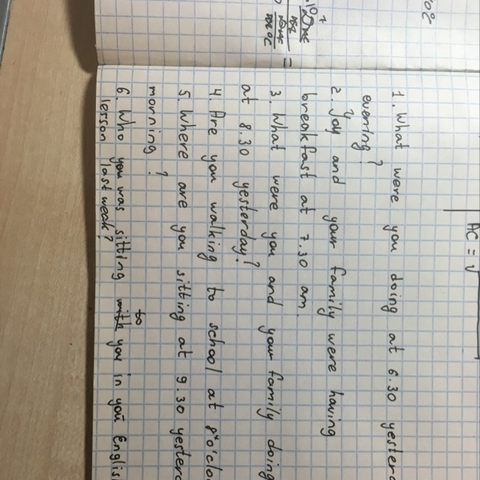 1. What were you doing at 6.30
evening?
2. You and your family were having
breakfast at 7.30 am
3. What were you and your family doing
at 8.30 yesterday?
4. Are you walking to school at
5. Where are you sitting at 9.30
morning?
6. Who you was sitting to you in you
lesson last weak?
AC = √